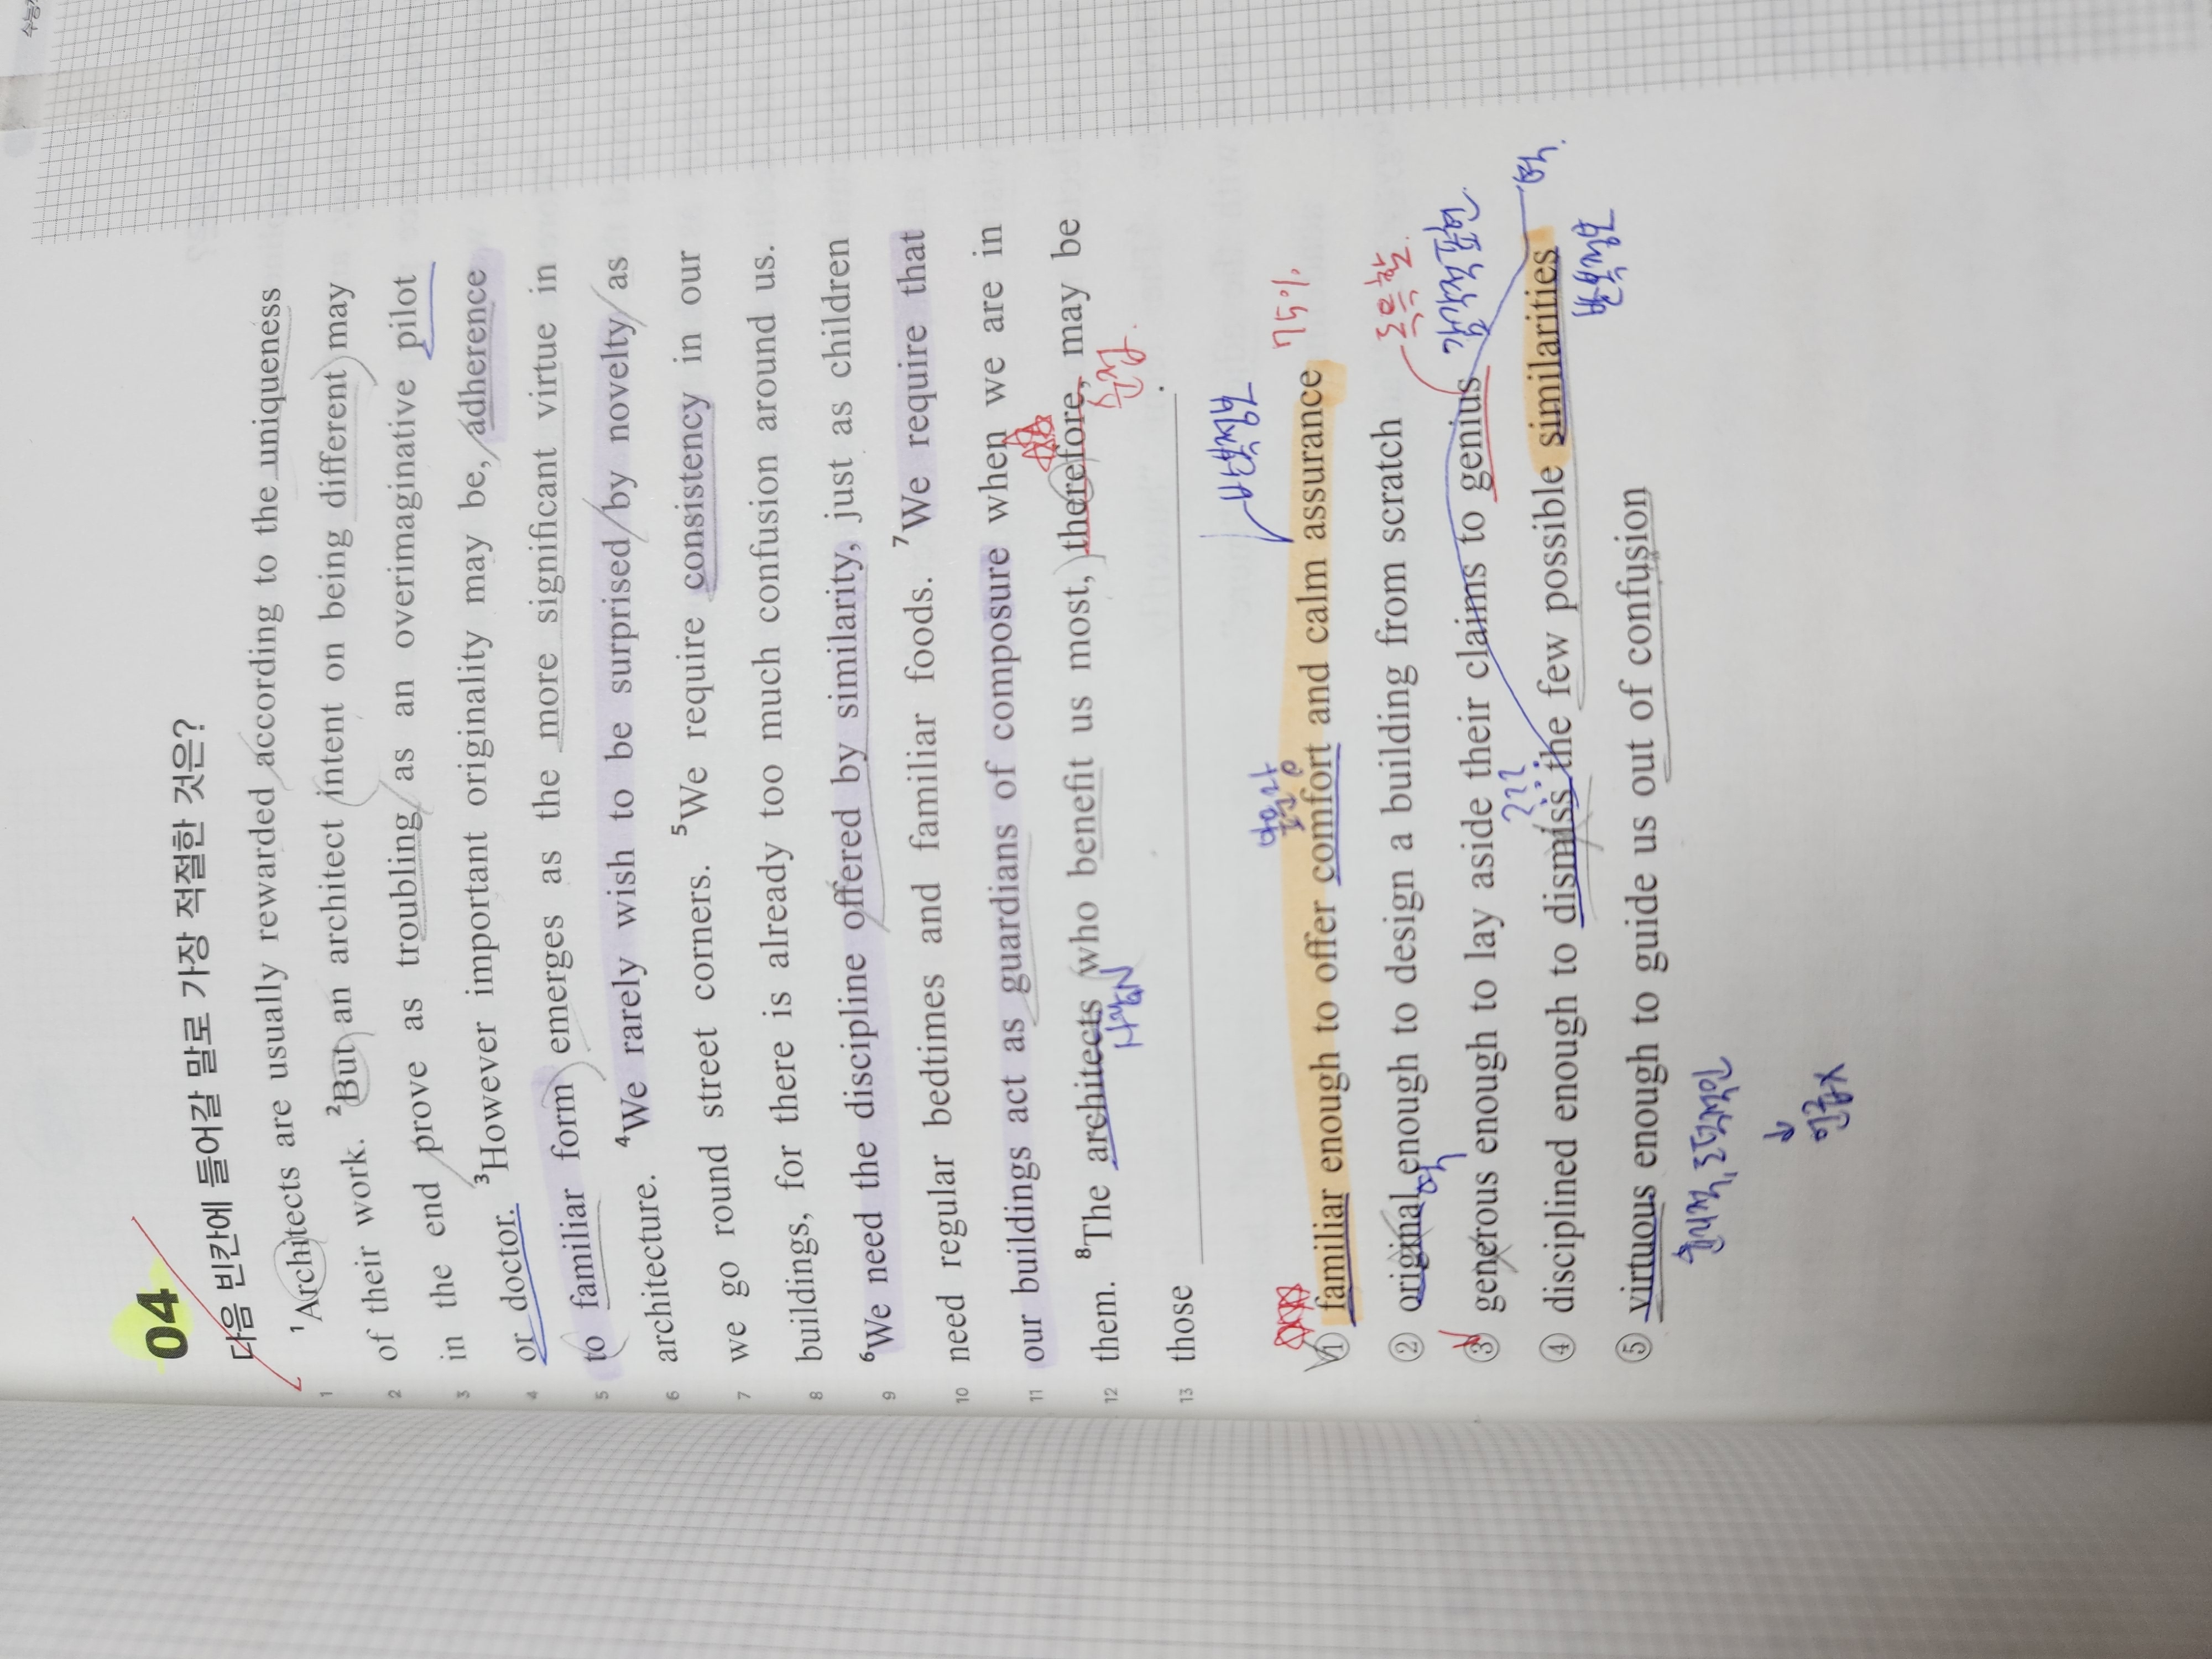 04
다음 빈칸에 들어갈 말로 가장 적절한 것은?
1 ¹Architects are usually rewarded according to the uniqueness
2 of their work. ²But an architect intent on being different may
3 in the end prove as troubling as an overimaginative pilot
4 or doctor. ³However important originality may be, adherence
5 to familiar form emerges as the more significant virtue in
6 architecture. ⁴We rarely wish to be surprised by novelty as
7 we go round street corners. ⁵We require consistency in our
8 buildings, for there is already too much confusion around us.
9 ⁶We need the discipline offered by similarity, just as children
10 need regular bedtimes and familiar foods. ⁷We require that
11 our buildings act as guardians of composure when we are in
12 them. ⁸The architects who benefit us most, therefore, may be
사람N
순접.
13 those .
반복적경향
75%
① familiar enough to offer comfort and calm assurance
② original enough to design a building from scratch
독특함.
③ generous enough to lay aside their claims to genius
???
④ disciplined enough to dismiss the few possible similarities
⑤ virtuous enough to guide us out of confusion
언급X